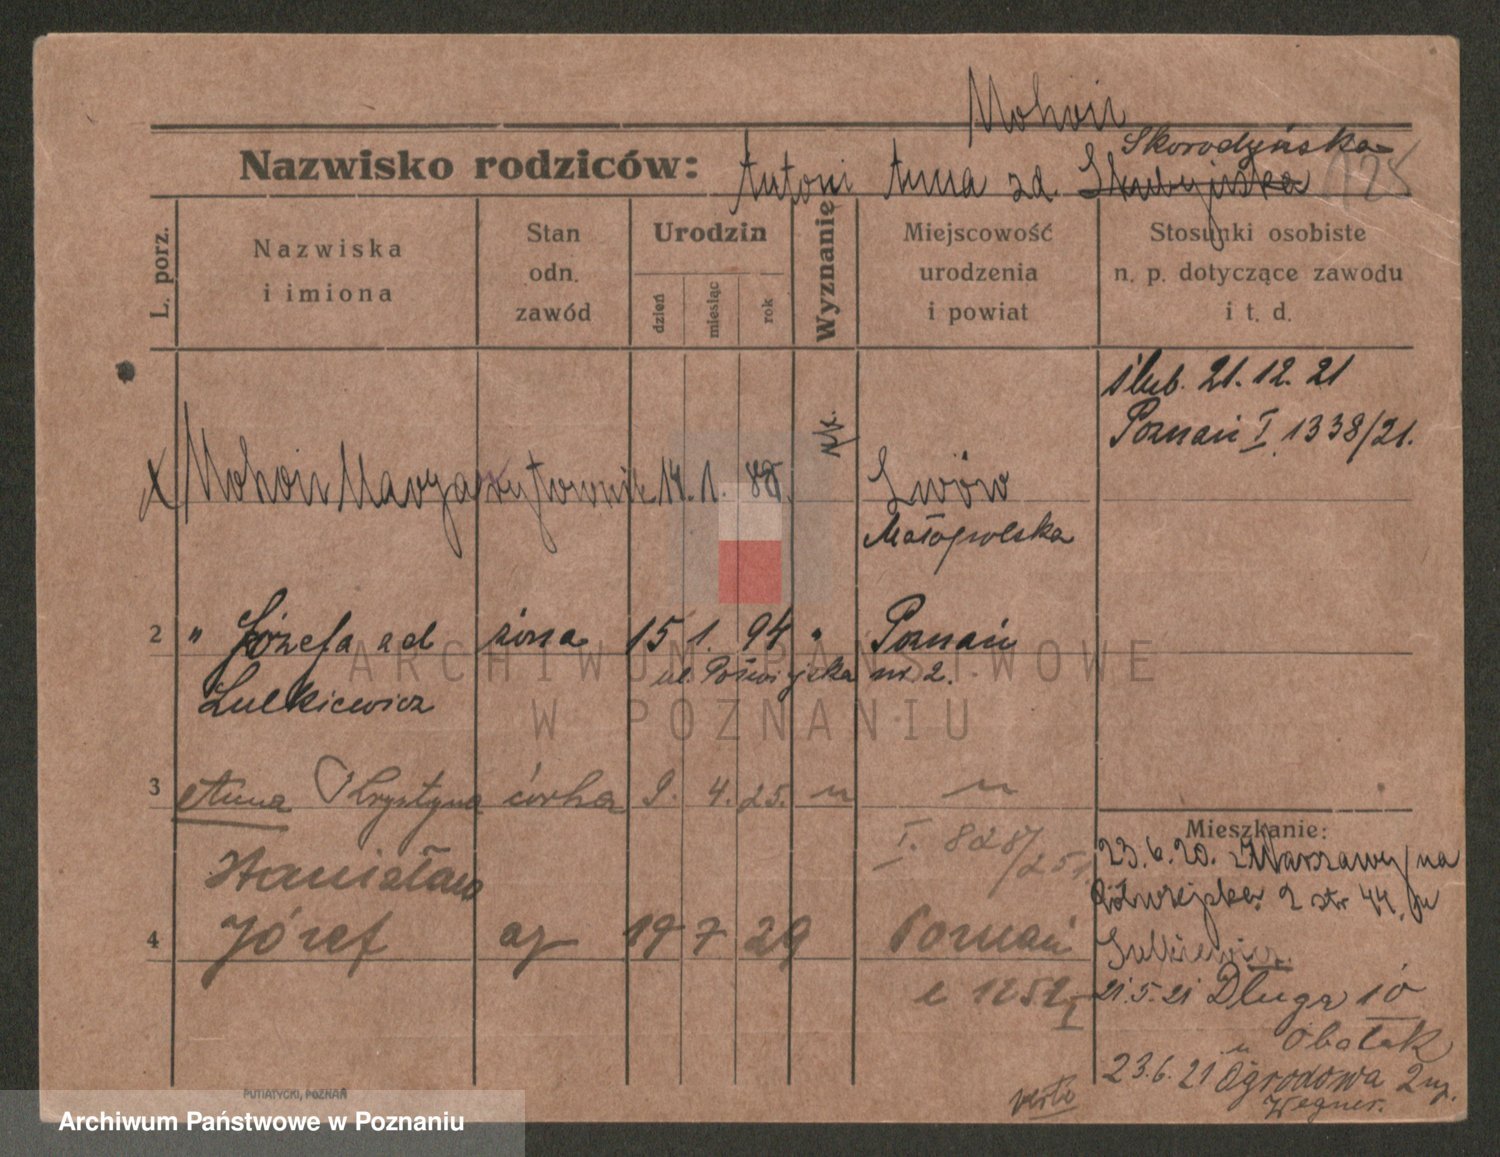 Mohoń
Skorodyńska
Nazwisko rodziców: Antoni Anna zd.
L. porz.
Nazwiska i imiona
Stan odn. zawód
Urodzin
dzień
miesiąc
rok
Wyznanie
Miejscowość urodzenia i powiat
Stosunki osobiste n. p. dotyczące zawodu i t. d.
ślub. 21. 12. 21
Poznań I. 1338/21.
Mohoń 14. 1. Lwów
Małopolska
2 " Józefa zd żona 15 1. 94 " Poznań
ul. nr 2.
Lulkiewicz
3 Anna Krystyna córka 9. 4. 25. " "
I. 828/251
Mieszkanie:
23. 6. 20. z Warszawy/na
2 str 44. m
Lulkiewicz.
Stanisław
4 Józef 19 7 29 Poznań
1252 I
21.5.21 Długa 10
u Obalak
23.6.21 Ogrodowa 2
Wegner.
verte
PUTIATYCKI, POZNAŃ
ARCHIWUM PAŃSTWOWE
W POZNANIU
Archiwum Państwowe w Poznaniu